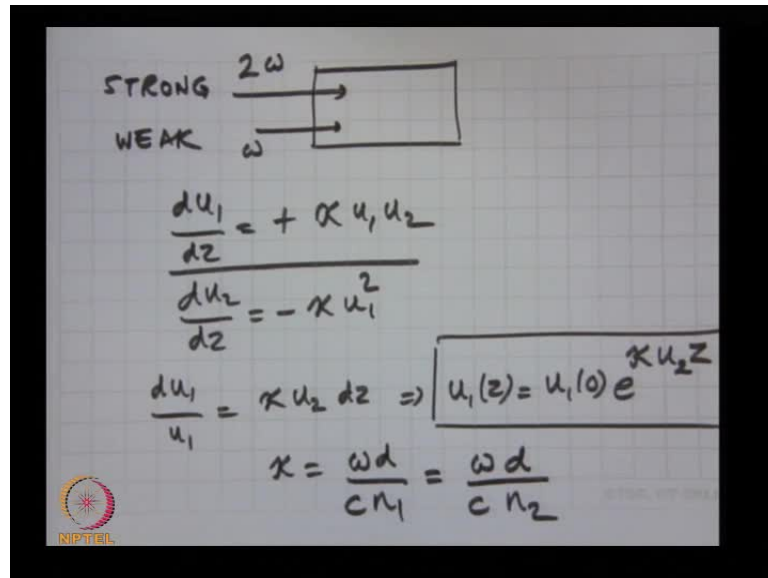 STRONG 2ω
WEAK ω
du₁/dz = + κ u₁ u₂
du₂/dz = - κ u₁²
du₁/u₁ = κ u₂ dz ⇒ u₁(z) = u₁(0) e^{κ u₂ z}
κ = ωd/cn₁ = ωd/cn₂
NPTEL